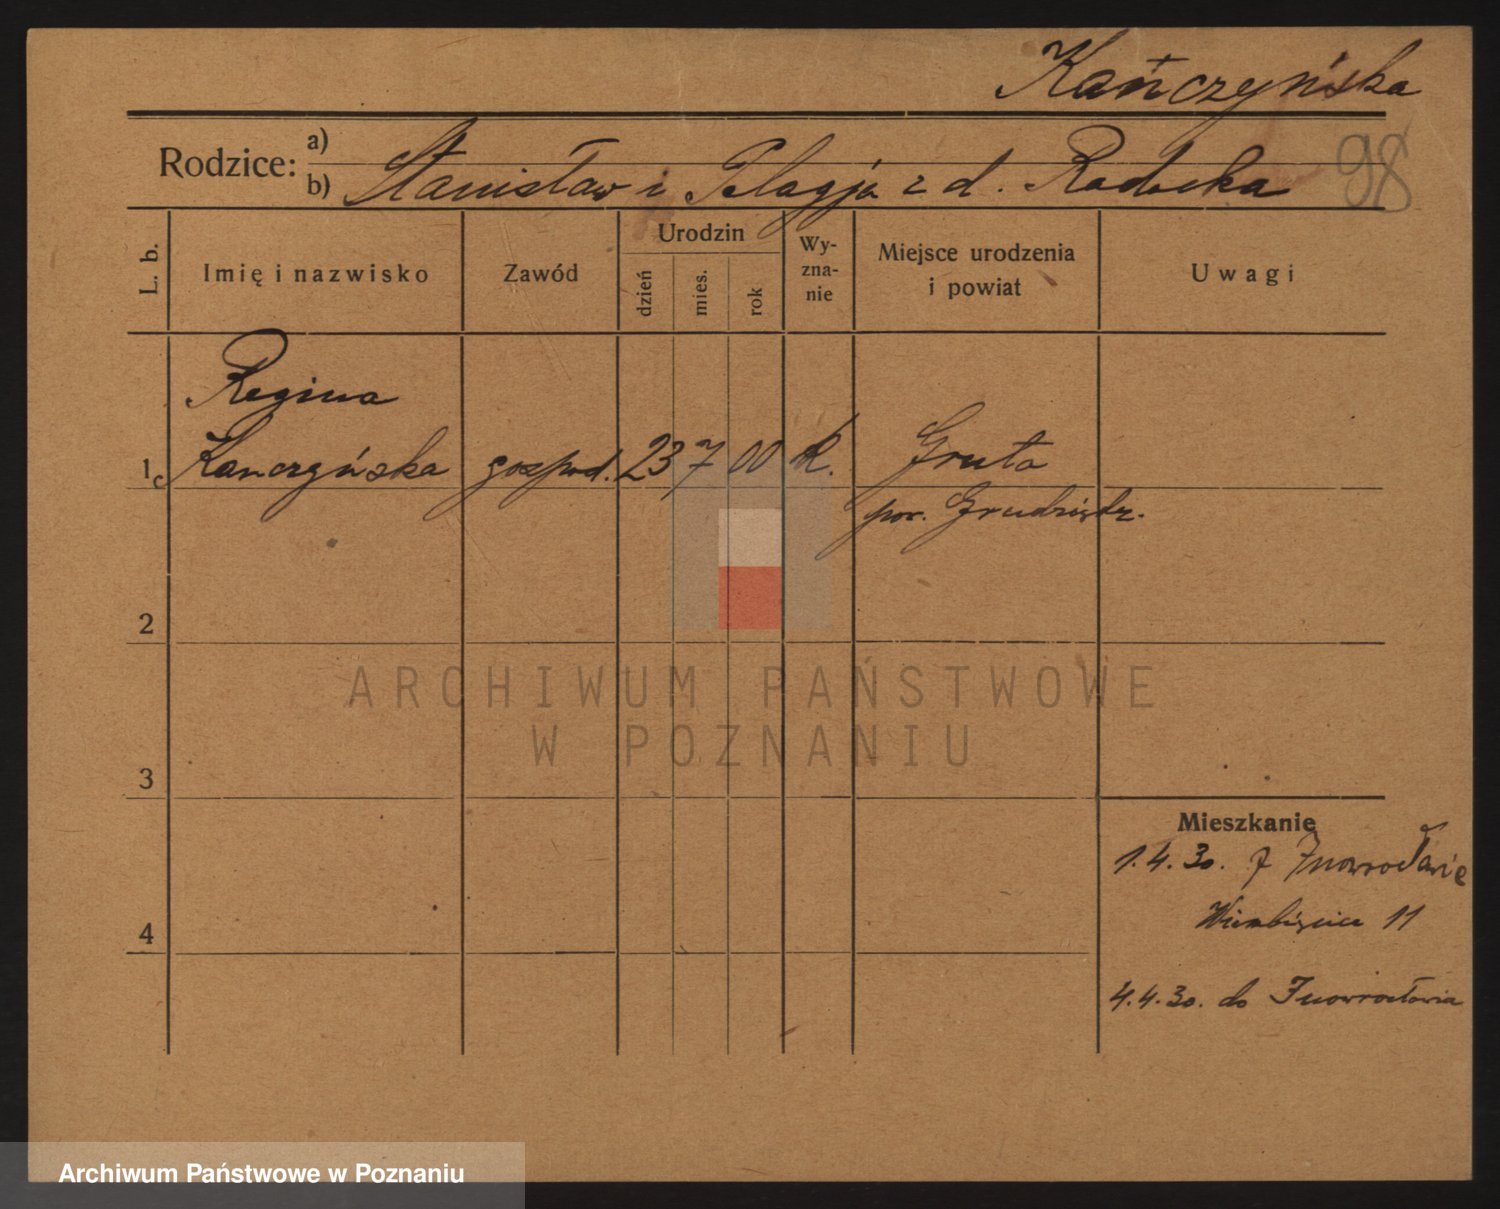 Kańczyńska
Rodzice: a)
b) Stanisław i Pelagja z d. Radecka
98
L. b.
Imię i nazwisko
Zawód
Urodzin
dzień
mies.
rok
Wy-
zna-
nie
Miejsce urodzenia
i powiat
Uwagi
Regina
1 Kanczyńska gospod. 23 7 00 k. Gruta
pow. Grudziądz.
2
3
4
Mieszkanie
1.4.30. z Inowrocławie
11
4.4.30. do Inowrocławia
ARCHIWUM PAŃSTWOWE
W POZNANIU
Archiwum Państwowe w Poznaniu